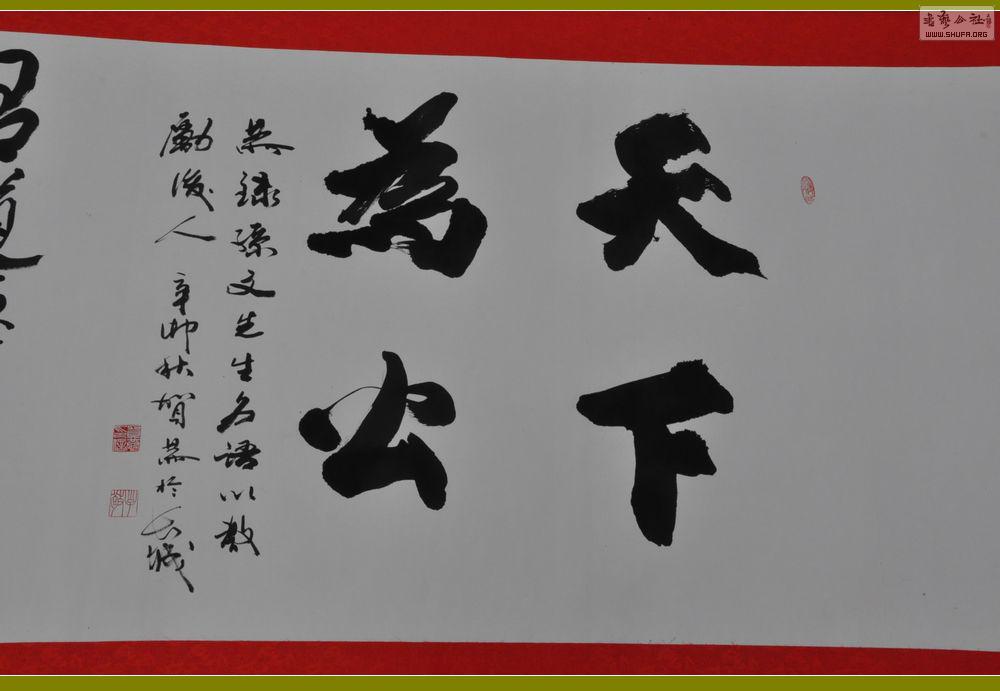 天下
為公
恭錄孫文先生名語以教
勵後人 辛卯秋賀恭於
書藝公社
WWW.SHUFA.ORG